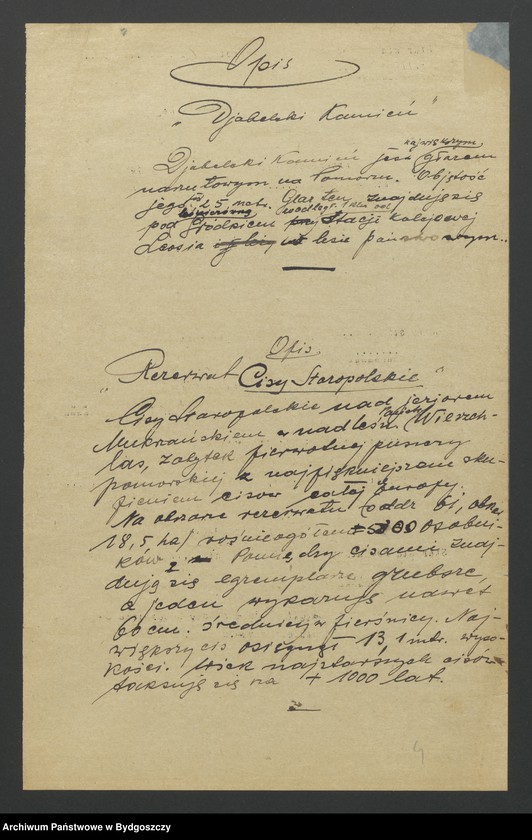 Opis
"Djabelski Kamień"
największym
Djabelski Kamień jest głazem
narzutowym na Pomorzu. Objętość
jego 25 mtr. Głaz ten znajduje się
leśniczówką
pod Grodziem Stacji kolejowej
Leosia w lesie państwowym.
Opis
"Rezerwat Cisy Staropolskie"
Cisy Staropolskie nad jeziorem
Mukrzańskiem w nadleśn. Wierzch-
las, zabytek pierwotnej puszczy
pomorskiej z najpiękniejszem sku-
pieniem cisów całej Europy.
Na obszarze rezerwatu (oddz. 61, obsz.
18,5 ha) rośnie ogółem osobni-
ków Pomiędzy cisami znaj-
dują się egzemplarze grubsze,
a jeden wykazuje nawet
60 cm. średnicy w pierśnicy. Naj-
większy cis osiągnął 13 1 mtr. wyso-
kości. Wiek najstarszych cisów
taksują się na + 1000 lat.
4
Archiwum Państwowe w Bydgoszczy